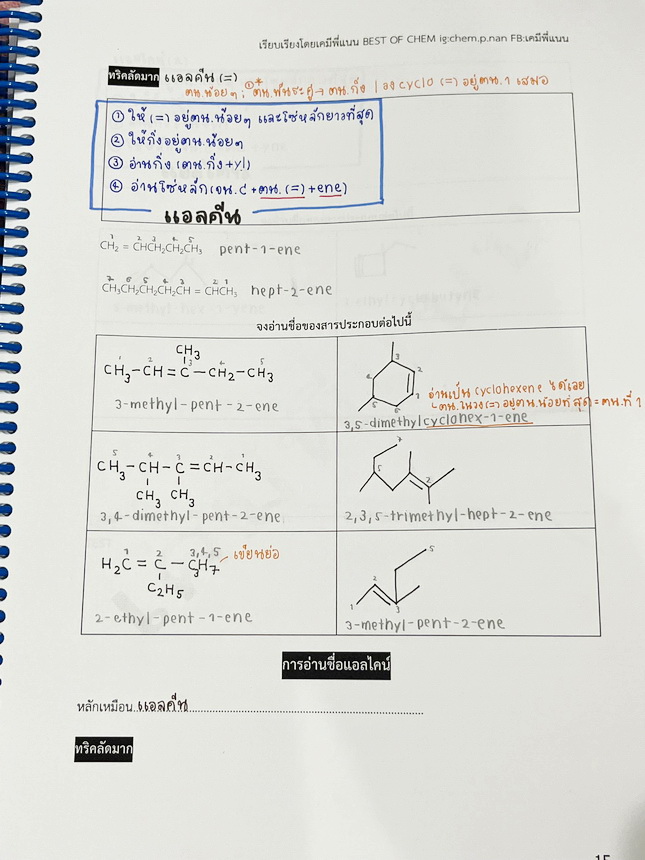 เรียบเรียงโดยเคมีพี่แนน BEST OF CHEM ig:chem.p.nan FB:เคมีพี่แนน
ทริคลัดมาก แอลคีน (=)
ตน.น้อยๆ ; ①* ตน.พันธะคู่ → ตน.กิ่ง | วง cyclo (=) อยู่ตน.1 เสมอ
① ให้ (=) อยู่ตน.น้อยๆ และโซ่หลักยาวที่สุด
② ให้กิ่งอยู่ตน.น้อยๆ
③ อ่านกิ่ง (ตน.กิ่ง+yl)
④ อ่านโซ่หลัก (จน.c + ตน.(=) + ene)
แอลคีน
1 2 3 4 5
CH₂ = CHCH₂CH₂CH₃ pent-1-ene
7 6 5 4 3 2 1
CH₃CH₂CH₂CH₂CH = CHCH₃ hept-2-ene
จงอ่านชื่อของสารประกอบต่อไปนี้
CH₃
1 2 3 4 5
CH₃-CH=C-CH₂-CH₃
3-methyl-pent-2-ene
3
4 2
5 6 1
อ่านเป็น cyclohexene ได้เลย
ตน.ในวง (=) อยู่ตน.น้อยที่สุด = ตน.ที่ 1
3,5-dimethylcyclohex-1-ene
5 4 3 2 1
CH₃-CH-C=CH-CH₃
CH₃ CH₃
3,4-dimethyl-pent-2-ene
7
5 2
2,3,5-trimethyl-hept-2-ene
1 2 3,4,5
H₂C = C - C₃H₇ เขียนย่อ
C₂H₅
2-ethyl-pent-1-ene
5
2
1 3
3-methyl-pent-2-ene
การอ่านชื่อแอลไคน์
หลักเหมือน แอลคีน
ทริคลัดมาก
15